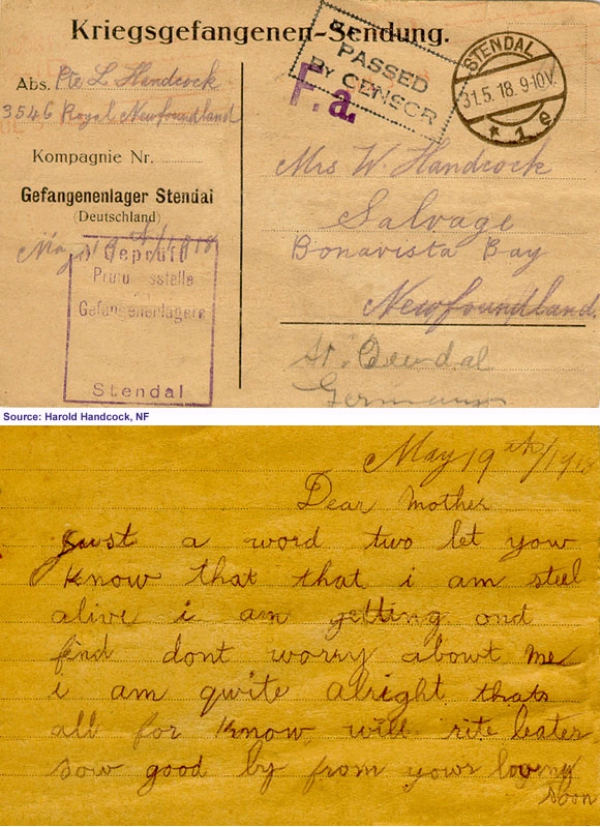 Kriegsgefangenen-Sendung.
PASSED
BY CENSOR
F.a.
STENDAL
31.5.18. 9-10V.
* 1 e
Abs. Pte L Handcock
3546 Royal Newfoundland
Kompagnie Nr.
Gefangenenlager Stendal
(Deutschland)
May 19th/1918
Geprüft
Gefangenenlagers
Stendal
Mrs W Handcock
Salvage
Bonavista Bay
Newfoundland.
Germany
Source: Harold Handcock, NF
May 19th/1918
Dear Mother
Just a word two let yow
know that that i am steel
alive i am getting ond
find dont worry abowt me
i am qwite alright thats
all for know will rite leater
sow good by from yowr loving
soon